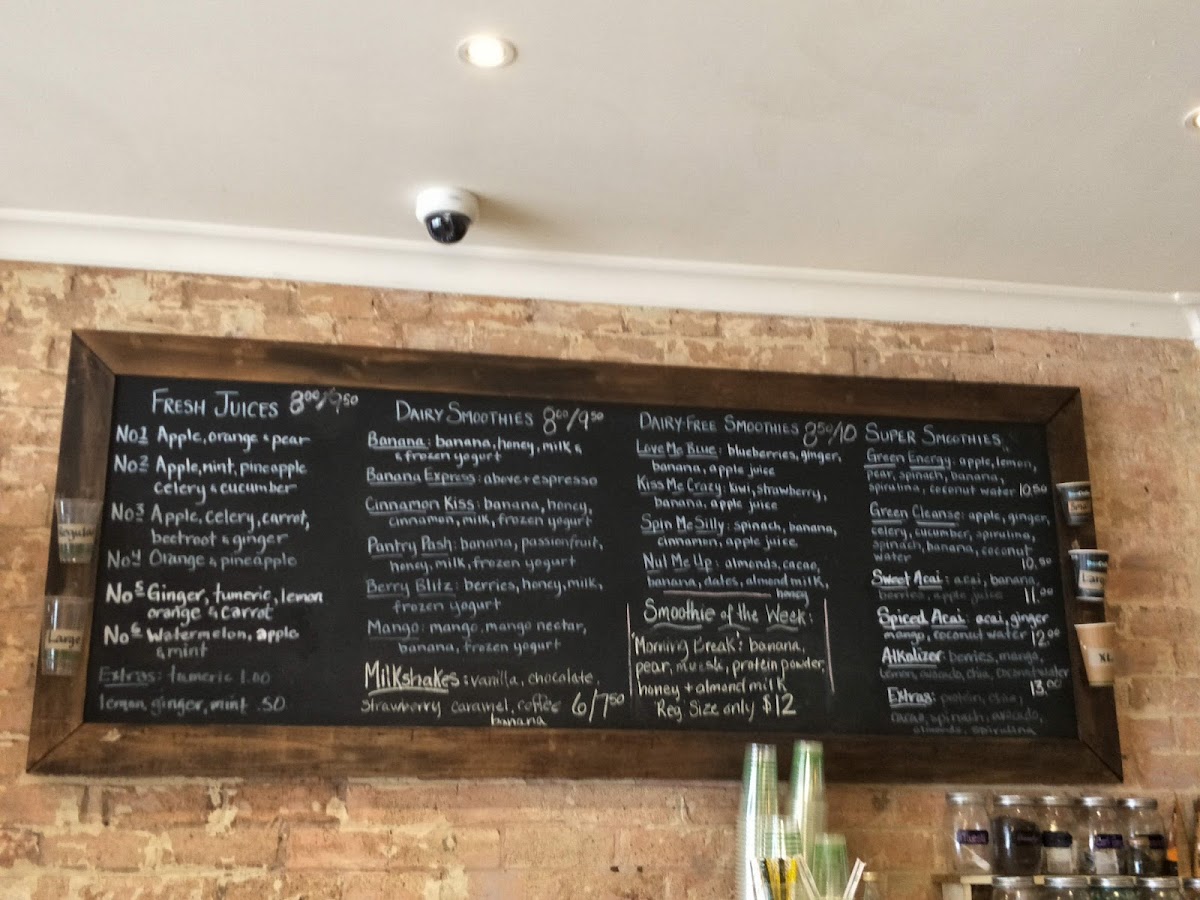 FRESH JUICES 8⁰⁰/9⁵⁰
No1 Apple, orange & pear
No2 Apple, mint, pineapple
celery & cucumber
No3 Apple, celery, carrot,
beetroot & ginger
No4 Orange & pineapple
No5 Ginger, tumeric, lemon
orange & carrot
No6 Watermelon, apple
& mint
Extras: tumeric 1.00
lemon, ginger, mint .50
DAIRY SMOOTHIES 8⁰⁰/9⁵⁰
Banana: banana, honey, milk &
& frozen yogurt
Banana Express: above + espresso
Cinnamon Kiss: banana, honey,
cinnamon, milk, frozen yogurt
Pantry Pash: banana, passionfruit,
honey, milk, frozen yogurt
Berry Blitz: berries, honey, milk,
frozen yogurt
Mango: mango, mango nectar,
banana, frozen yogurt
Milkshakes: vanilla, chocolate,
strawberry caramel, coffee 6/7⁵⁰
banana
DAIRY-FREE SMOOTHIES 8⁵⁰/10
Love Me Blue: blueberries, ginger,
banana, apple juice
Kiss Me Crazy: kiwi, strawberry,
banana, apple juice
Spin Me Silly: spinach, banana,
cinnamon, apple juice
Nut Me Up: almonds, cacao,
banana, dates, almond milk,
honey
Smoothie of the Week:
'Morning Break': banana,
pear, muesli, protein powder,
honey + almond milk
Reg Size only $12
SUPER SMOOTHIES
Green Energy: apple, lemon,
pear, spinach, banana,
spirulina, coconut water 10.50
Green Cleanse: apple, ginger,
celery, cucumber, spirulina,
spinach, banana, coconut
water 10.50
Sweet Acai: acai, banana,
berries, apple juice 11.00
Spiced Acai: acai, ginger
mango, coconut water 12.00
Alkalizer: berries, mango,
lemon, avocado, chia, coconut water
13.00
Extras: protein, chia,
cacao, spinach, avocado,
almonds, spirulina
Regular
Large
Large
XL